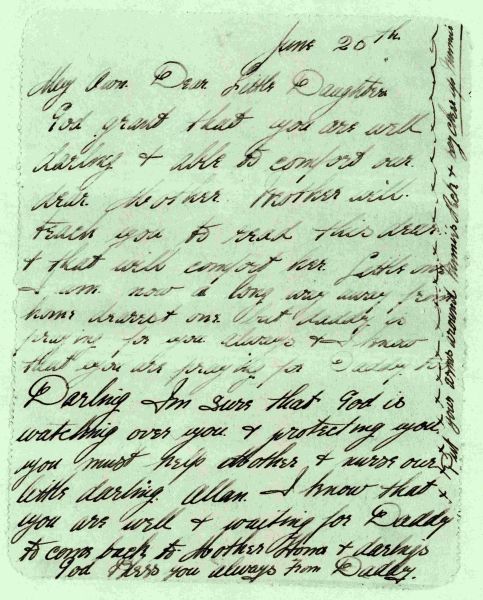 June 20th.
My Own Dear Little Daughter
God grant that you are well
darling & able to comfort our
dear Mother. Mother will
teach you to read this dear
& that will comfort her. Little one
I am now a long way away from
home dearest one but daddy is
praying for you always & I know
that you are praying for Daddy to
Darling I'm sure that God is
watching over you & protecting you
you must help Mother & nurse our
little darling Allan. I know that
you are well & waiting for Daddy
to come back to Mother Home & darlings
God Bless you always from Daddy.
Put your arms around Mumie's neck &